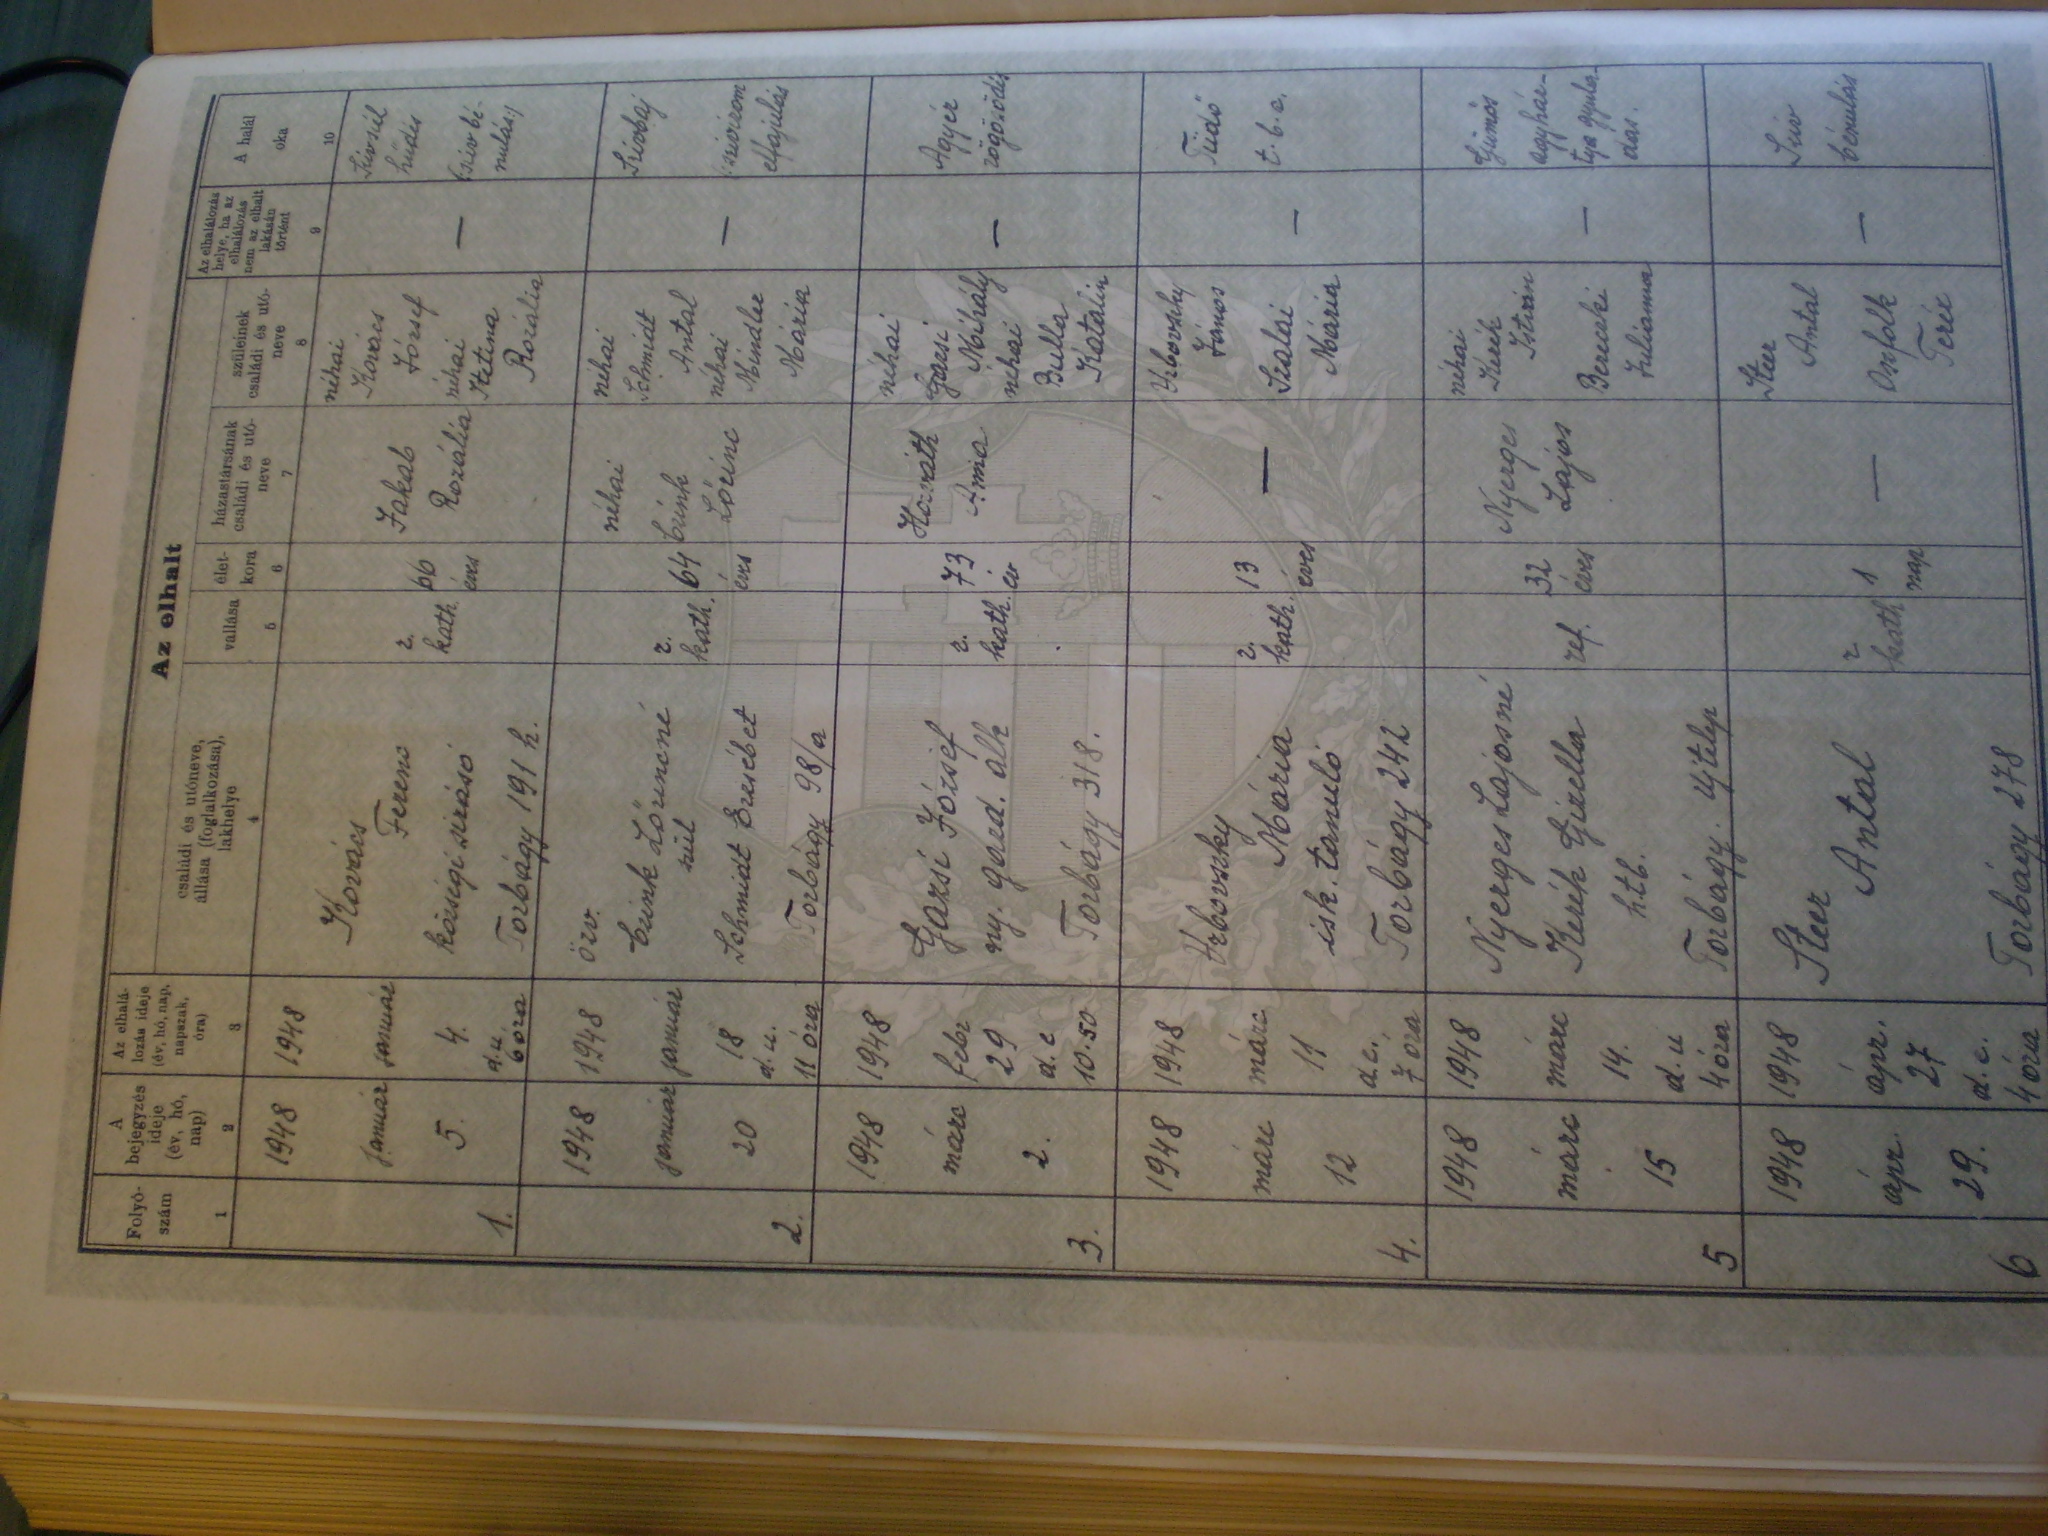 Az elhalt
Folyó-
szám
A
bejegyzés
ideje
(év, hó,
nap)
Az elhalá-
lozás ideje
(év, hó, nap,
napszak,
óra)
családi és utóneve,
állása (foglalkozása),
lakhelye
vallása
élet-
kora
házastársának
családi és utó-
neve
szüleinek
családi és utó-
neve
Az elhalálozás
helye, ha az
elhalálozás
nem az elhalt
lakásán
történt
A halál
oka
1
2
3
4
5
6
7
8
9
10
1.
1948
január
5.
1948
január
4.
d.u.
6 óra
Kovács
Ferenc
községi
Torbágy 191 h.
r.
kath.
66
éves
Jakab
Rozália
néhai
Kovács
József
néhai
Rozália
—
Szívszél
hűdés
(szív bé-
nulás)
2.
1948
január
20
1948
január
18
d.u.
11 óra
özv.
Czink Lőrincné
szül
Schmidt Erzsébet
Torbágy 98/a
r.
kath.
64
éves
néhai
Czink
Lőrinc
néhai
Schmidt
Antal
néhai
Mindler
Mária
—
Szívbaj
(szívizom
elfajulás
3.
1948
márc
2.
1948
febr
29
d.e
10.50
Garsi József
ny. gazd. alk
Torbágy 318.
r.
kath.
73
év
Horváth
Anna
néhai
Garsi
Mihály
néhai
Bulla
Katalin
—
Agyér
rögösödés
4.
1948
márc
12
1948
márc
11
d.e.
7 óra
Urbovszky
Mária
isk. tanuló
Torbágy 242
r.
kath.
13
éves
—
Urbovszky
János
Szalai
Mária
—
Tüdő
t.b.c.
5
1948
márc
15
1948
márc
14.
d.u
4 óra
Nyerges Lajosné
Kerék Gizella
h.t.b.
Torbágy. Ujtelep
ref.
32
éves
Nyerges
Lajos
néhai
Kerék
István
Bereczki
Julianna
—
Gümős
agyhár-
tya gyula-
dás.
6
1948
ápr.
29.
1948
ápr.
27
d.e.
4 óra
Steer
Antal
Torbágy 278
r.
kath
1
nap
—
Steer
Antal
Teréz
—
Szív
bénulás